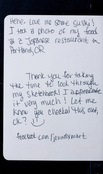 Here, have me some sushi!
I took a photo of my food
at a Japanese restaurant in
Portland, OR
Thank you for taking
the time to look through
my sketchbook! I appreciate
it very much! Let me
know you checked this out,
ok? :)
facebook.com/